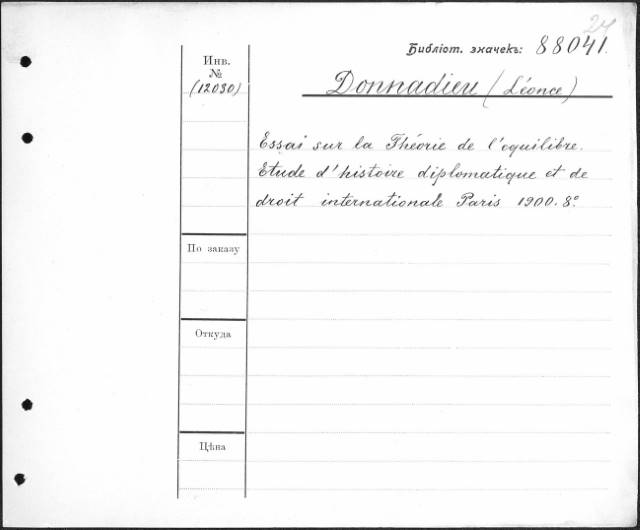 24
Библіот. значекъ: 88041.
Инв.
№
(12030)
Donnadieu (Léonce)
Essai sur la Théorie de l'equilibre.
Etude d'histoire diplomatique et de
droit internationale Paris 1900. 8°
По заказу
Откуда
Цѣна